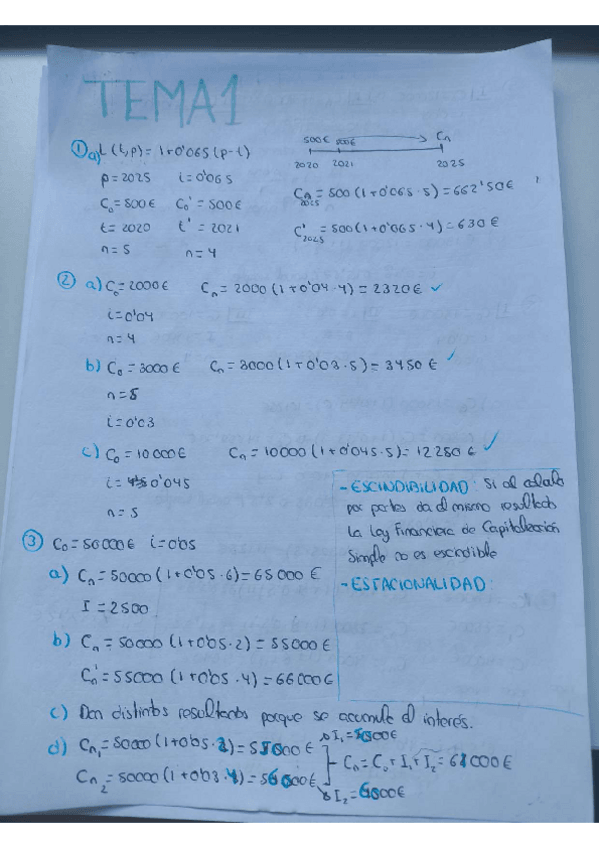 TEMA 1
① a) L(t,p) = 1+0'065(p-t)
500€ 500€ Cn
2020 2021 2025
p = 2025 i = 0'065
C₀ = 500€ C₀' = 500€
Cn 2025 = 500(1+0'065·5) = 662'50€
t = 2020 t' = 2021
C' 2025 = 500(1+0'065·4) = 630€
n = 5 n = 4
② a) C₀ = 2000€ Cn = 2000(1+0'04·4) = 2320€ ✓
i = 0'04
n = 4
b) C₀ = 3000€ Cn = 3000(1+0'03·5) = 3450€ ✓
n = 5
i = 0'03
c) C₀ = 10000€ Cn = 10000(1+0'045·5) = 12250€ ✓
i = 0'045
n = 5
- ESCINDIBILIDAD: Si al
por partes da el mismo resultado
La Ley Financiera de Capitalización
Simple no es escindible
- ESTACIONALIDAD:
③ C₀ = 50000€ i = 0'05
a) Cn = 50000(1+0'05·6) = 65000€
I = 2500
b) Cn = 50000(1+0'05·2) = 55000€
Cn' = 55000(1+0'05·4) = 66000€
c) Dan distintos resultados porque se acumula el interés.
d) Cn₁ = 50000(1+0'05·2) = 55000€ I₁ = 5000€
Cn = C₀+I₁+I₂ = 61000€
Cn₂ = 50000(1+0'03·4) = 56000€ I₂ = 6000€